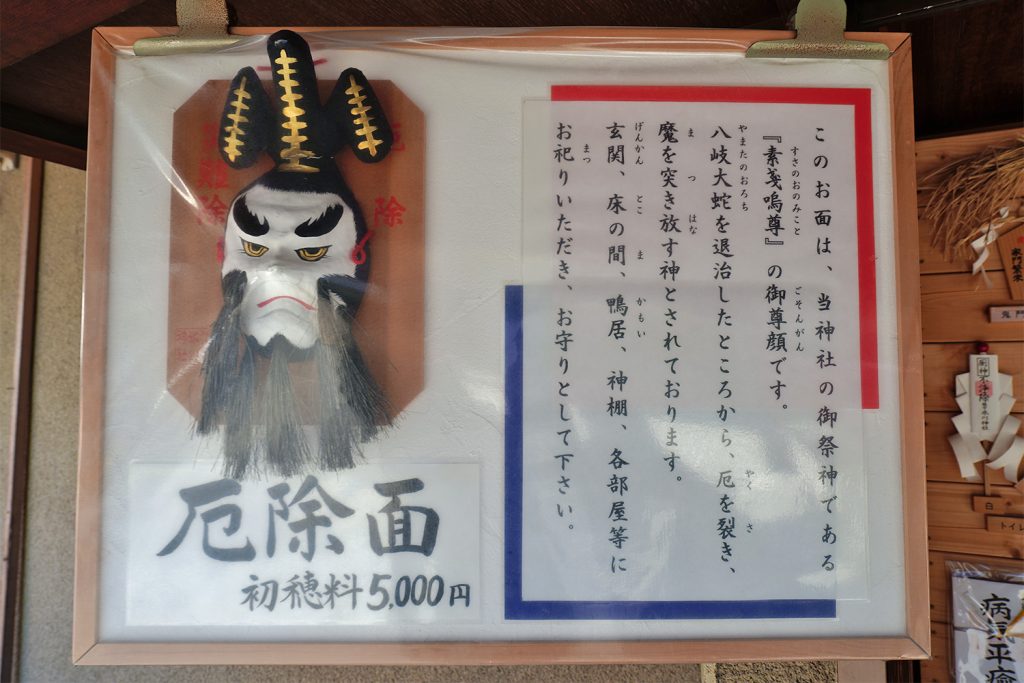 このお面は、当神社の御祭神である
『素戔嗚尊』の御尊顔です。
すさのおのみこと
ごそんがん
八岐大蛇を退治したところから、厄を裂き、
やまたのおろち
やく
さ
魔を突き放す神とされております。
ま
つ
はな
玄関、床の間、鴨居、神棚、各部屋等に
げんかん
とこ
ま
かもい
お祀りいただき、お守りとして下さい。
まつ
厄除面
初穂料5,000円
難
除
除
鬼門
白
トイレ
病気平癒